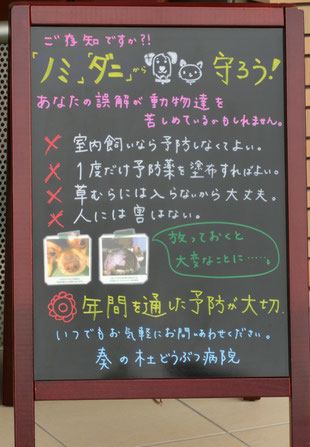 ご存知ですか?!
「ノミ」「ダニ」から 守ろう!
あなたの誤解が動物達を
苦しめているかもしれません。
× 室内飼いなら予防しなくてよい。
× 1度だけ予防薬を塗布すればよい。
× 草むらには入らないから大丈夫。
× 人には害はない。
放っておくと
大変なことに……。
年間を通した予防が大切.
いつでもお気軽にお問いあわせください。
奏の杜どうぶつ病院